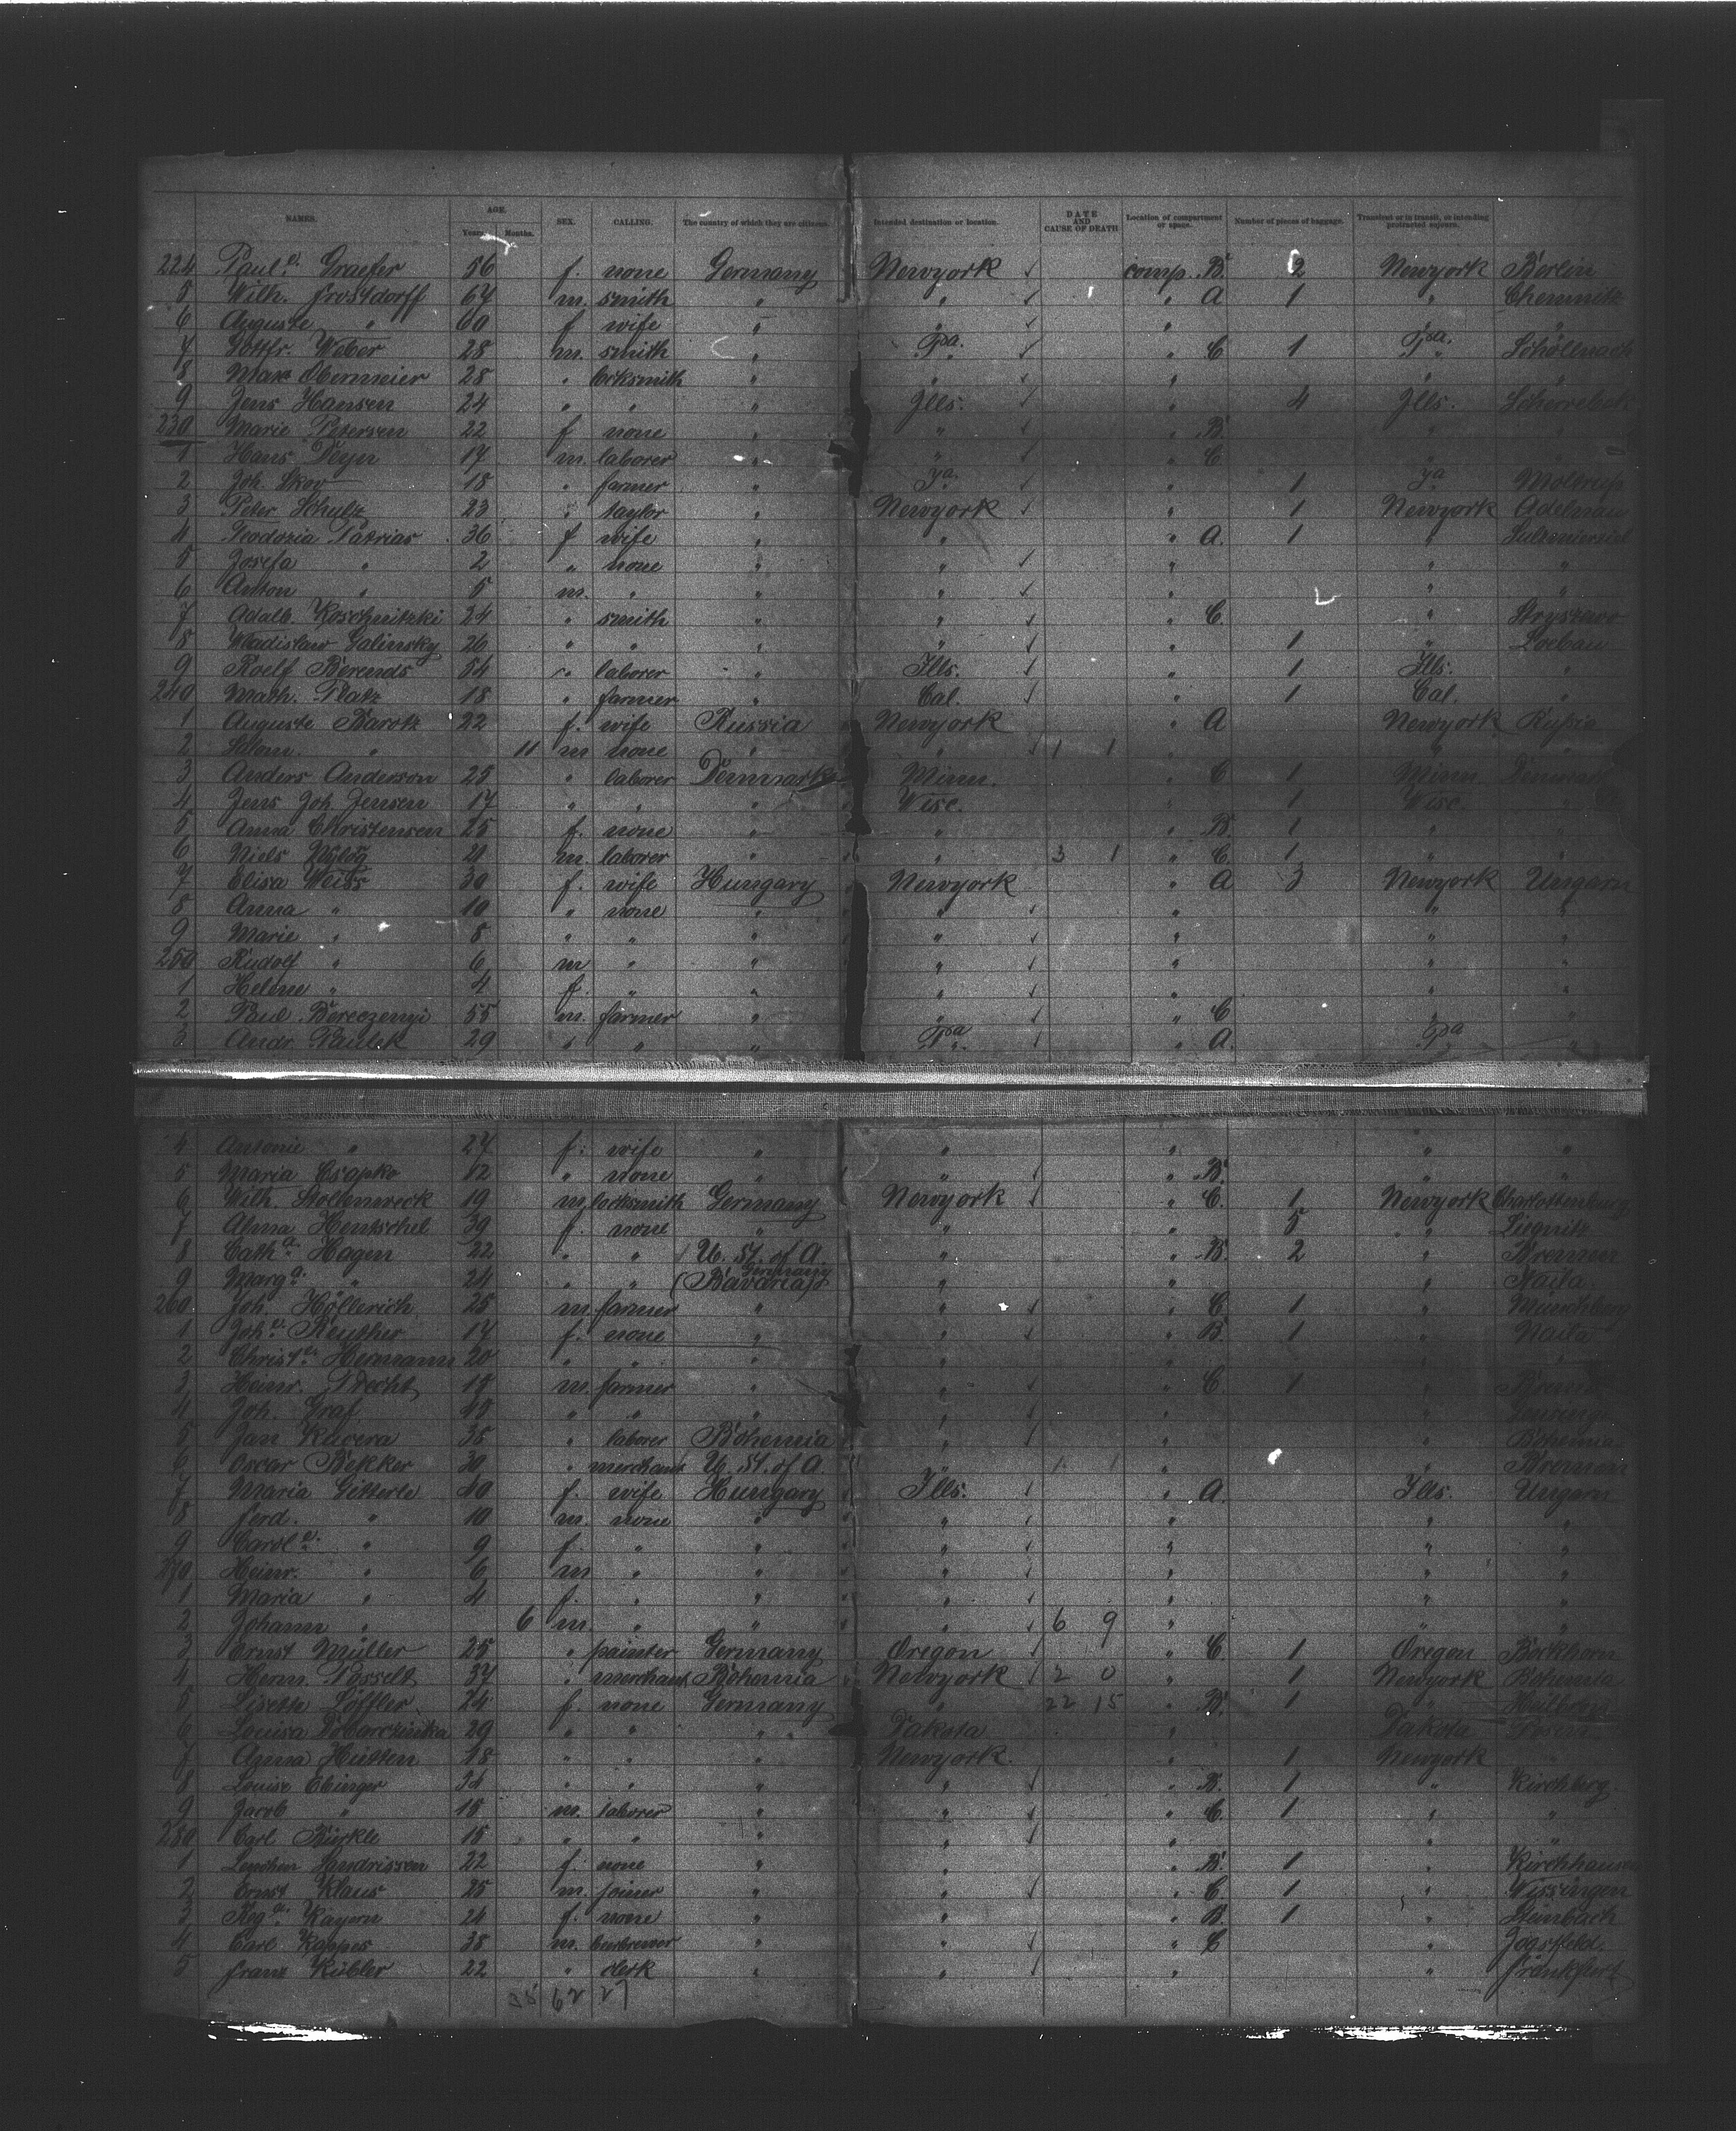 NAMES. AGE. SEX. CALLING. The country of which they are citizens. Intended destination or location. DATE AND CAUSE OF DEATH Location of compartment or space. Number of pieces of baggage. Transient or in transit, or intending protracted sojourn.
Years. Months.
224 Paul.e Graefer 56 f. none Germany Newyork comp. B. 2 Newyork Berlin
5 Wilh. Frostdorff 64 m. smith " " " A 1 " Chemnitz
6 Auguste " 60 f wife " " " " "
7 Gottfr. Weber 28 m. smith " Pa. " C 1 Pa. Schöllnach
8 Max Obermeier 28 " locksmith " " " " "
9 Jens Hansen 24 " " " Ills. " 4 Ills. Scherrebek
230 Marie Petersen 22 f none " " " B. " "
1 Hans Deyn 17 m. laborer " " " C. " "
2 Joh. Skov 18 " farmer " Ja. " 1 Ja Moltrup
3 Peter Schulz 23 " taylor " Newyork " 1 Newyork Adelnau
4 Teodozia Patrias 36 f wife " " " A. 1 "
5 Josefa " 2 " none " " " " "
6 Anton " 5 m. " " " " " "
7 Adalb. Koschnitzki 24 " smith " " " C. " Stryszewo
8 Wladislaw Galinsky 26 " " " " " 1 " Loebau
9 Roelf Berends 54 " laborer " Ills. " 1 Ills. "
240 Math. Platz 18 " farmer " Cal. " 1 Cal. "
1 Auguste Barotz 22 f. wife Russia Newyork " A Newyork Rußia
2 " 11 m none " " 1 1 " " "
3 Anders Anderson 25 " laborer Denmark Minn. " C 1 Minn
4 Jens Joh. Jensen 17 " " " Wisc. " 1 Wisc. "
5 Anna Christensen 25 f. none " " " B. 1 " "
6 Niels 21 m. laborer " " 3 1 " C. 1 " "
7 Elisa Weiss 30 f. wife Hungary Newyork " A 3 Newyork Ungarn
8 Anna " 10 " none " " " " "
9 Marie " 8 " " " " " " "
250 Rudolf " 6 m " " " " " "
1 Helene " 4 f. " " " " " "
2 Paul Bereczenyi 55 m. farmer " " " C " "
3 Andr. Paulik 29 " " " Pa. " A. Pa "
4 Antonie " 27 f. wife " " " " "
5 Maria Csapko 12 " none " " " B. " "
6 Wilh. Stollenwerk 19 m. locksmith Germany Newyork " C. 1 Newyork Charlottenburg
7 Alma Hentschel 39 f. none " " " 5 " Liegnitz
8 Cath.a Hagen 22 " " U. St. of A. " " B. 2 " Bremen
9 Marg.a " 24 " " (Bavaria) Germany " " " Naila
260 Joh. Höllerich 25 m. farmer " " " C. 1 " Münchberg
1 Joh.e Reuther 17 f. none " " " B. 1 " Naila
2 Christ.e Hermann 20 " " " " " " "
3 Heinr. 17 m. farmer " " " C. 1 "
4 Joh. Graf 45 " " " " " "
5 Jan Kucera 35 " laborer Bohemia " " " Bohemia
6 Oscar Bekker 30 " merchant U. St. of A. " 1 1 " " Bremen
7 Maria Gitterle 40 f. wife Hungary Ills. " A. Ills. Ungarn
8 Ferd. " 10 m. none " " " " "
9 Carol.e " 9 f. " " " " " "
270 Heinr. " 6 m " " " " " "
1 Maria " 4 f. " " " " " "
2 Johann " 6 m. " " " 6 9 " " "
3 Ernst Müller 25 " painter Germany Oregon " C 1 Oregon Bockhorn
4 Herm. Posselt 37 " merchant Bohemia Newyork 2 0 " 1 Newyork Bohemia
5 Lisette Löffler 24 f. none Germany " 22 15 " B. 1 " Heilbronn
6 Louisa 29 " " " Dakota " Dakota Posen
7 Anna Hütten 18 " " " Newyork. " 1 Newyork "
8 Louise Ebinger 34 " " " " " B. 1 " Kirchberg.
9 Jacob " 15 m. laborer " " " C. 1 " "
280 Carl Bürkle 15 " " " " " " "
1 Lenchen Hendrissen 22 f. none " " " B. 1 " Kirchhausen
2 Ernst Klaus 25 m. joiner " " " C. 1 " Wissingen
3 Reg.a Kayern 24 f. none " " " B. 1 " Steinbach
4 Carl Kappes 38 m. beerbrewer " " " C " Jagstfeld.
5 Franz Kübler 22 " clerk " " " Frankfurt
38 62 27